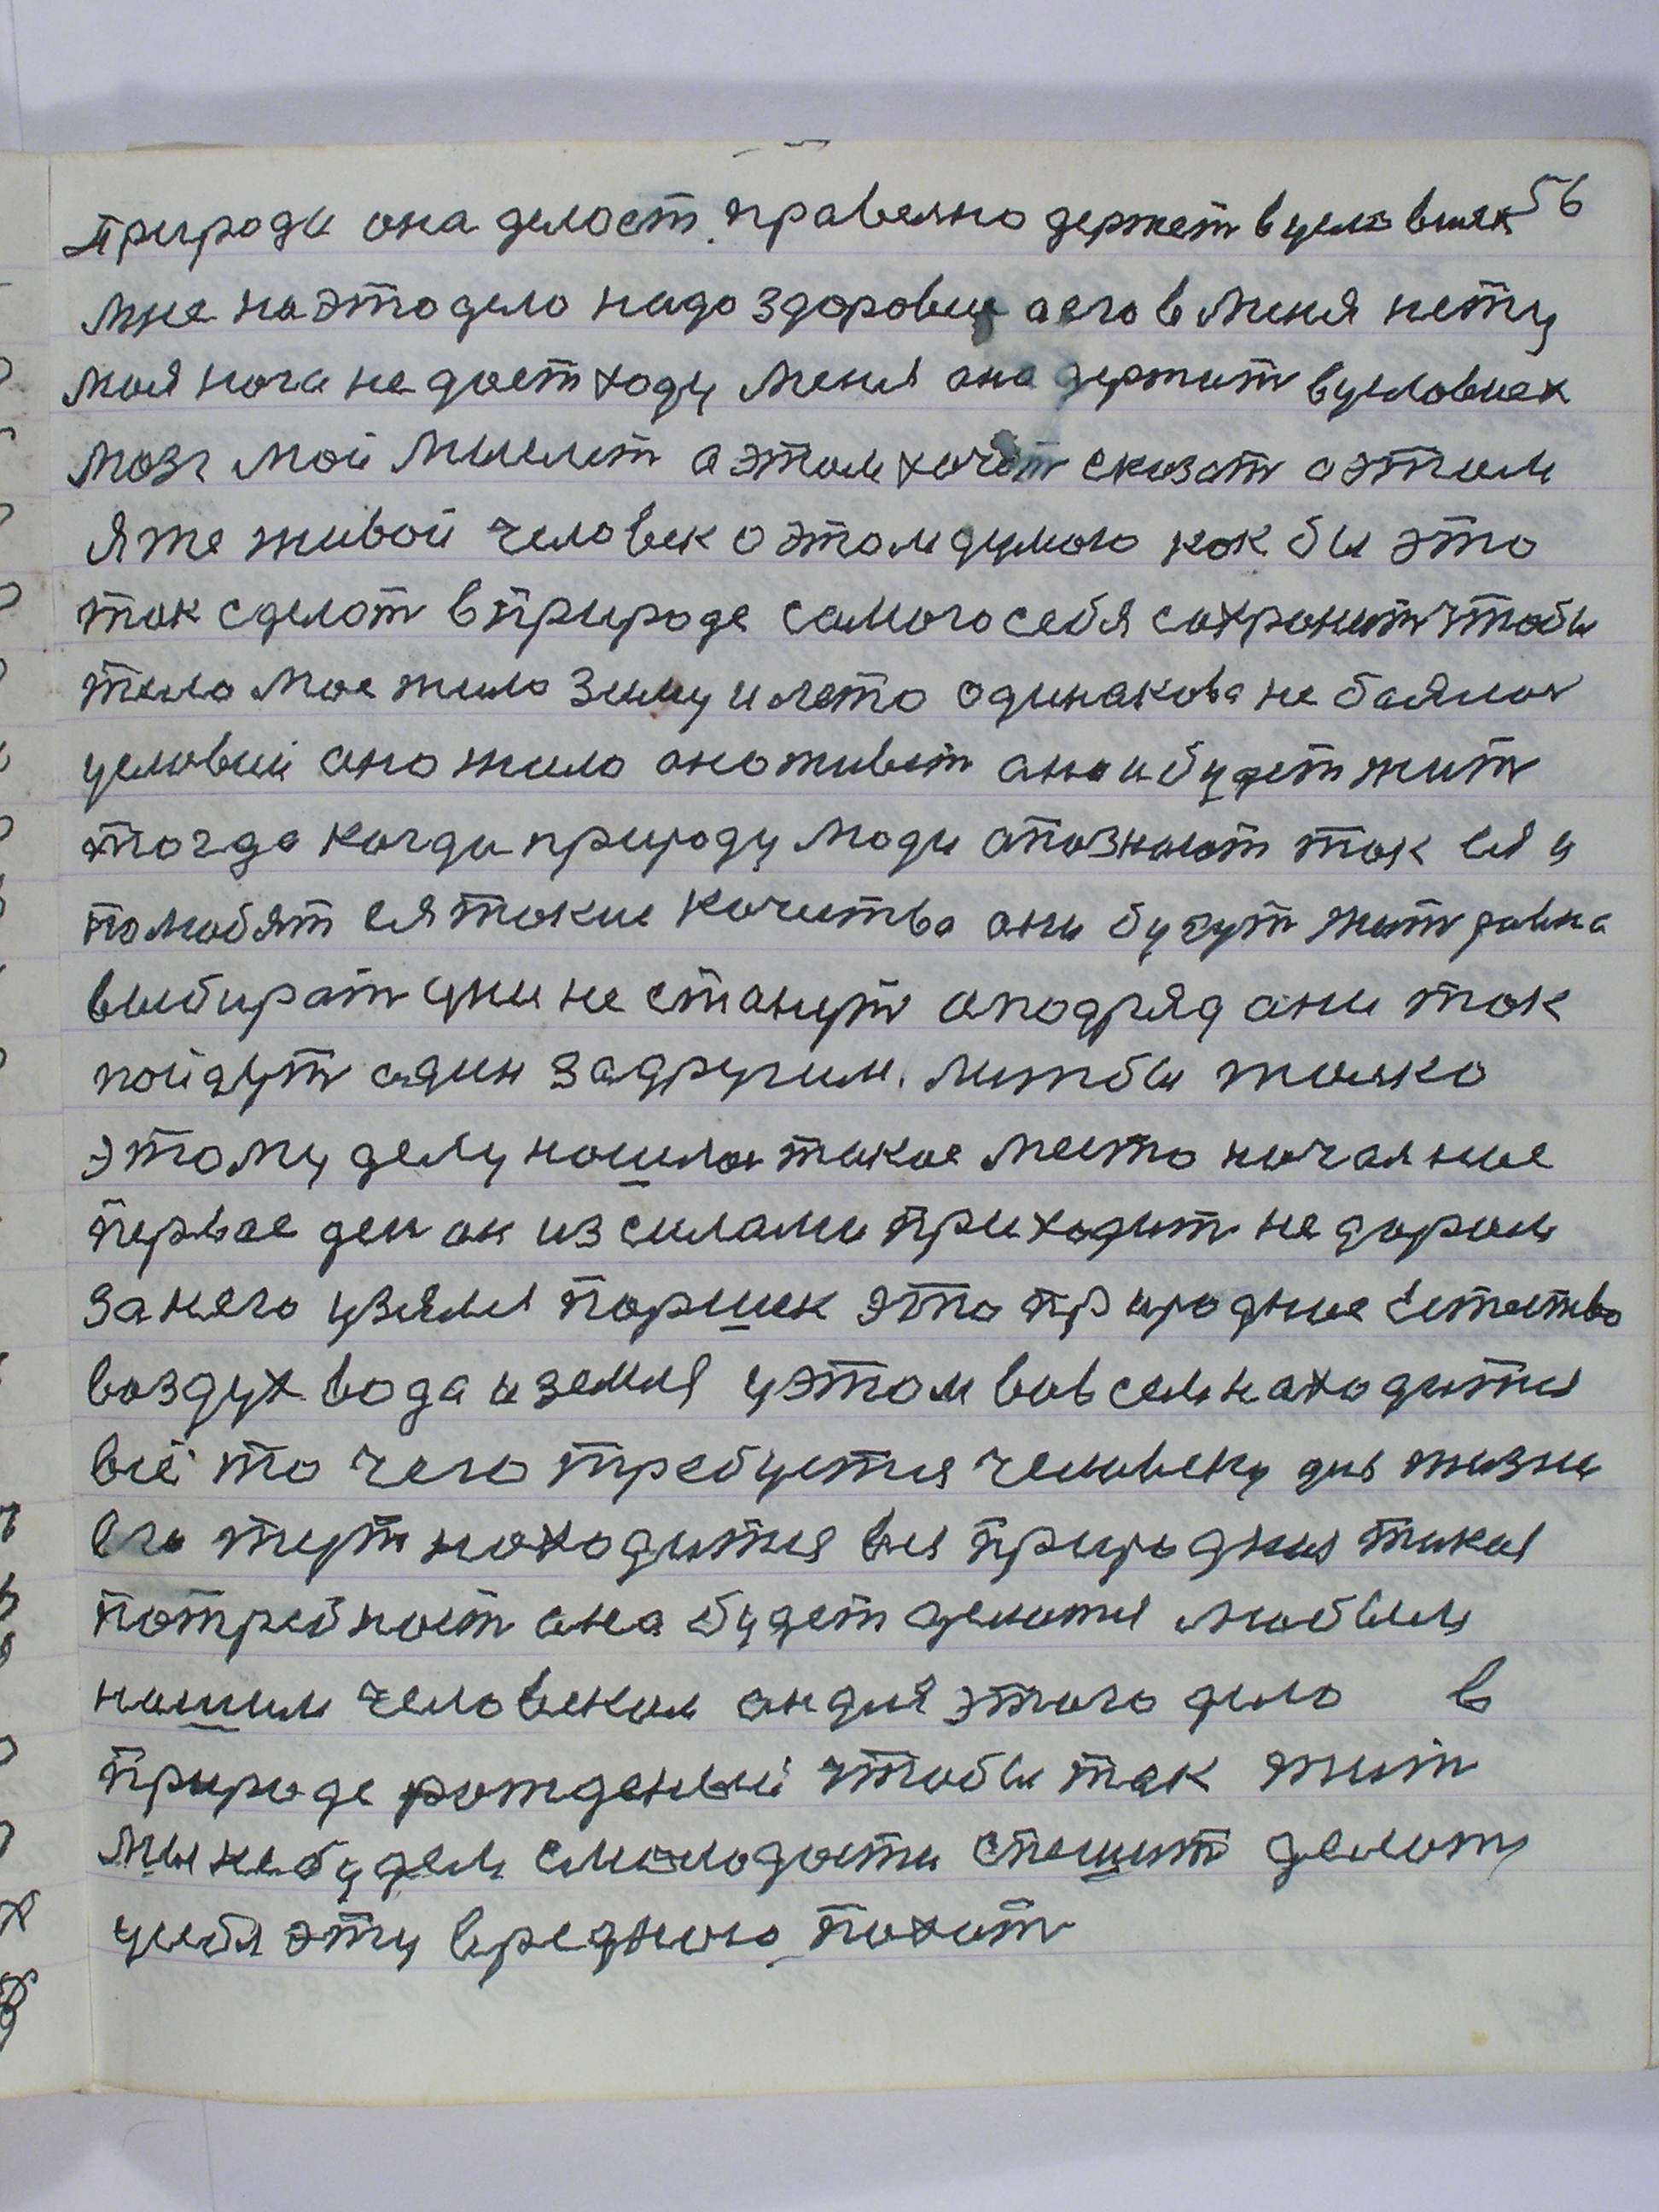 56
природи она делает. правелно держет в условиях
мне на это дело надо здоровия а его в меня нету
моя нога не дает ходу меня она держит в условиех
мозг мой мыслит о этом хочет сказат о этом
я же живой человек о этом думаю как бы это
так сделат в природе самого себя сохранит чтобы
тело мое жило зиму и лето одинакова не баялос
условий оно жило оно живет оно и будет жит
тогда когда природу люди опознают так ея и
полюбят ея такие качества они будут жит равна
выбират дни не станут а подряд они так
пойдут один за другим. лиш бы толко
этому делу нашлос такое место началное
первое ден он из силами приходит не даром
за няго узялся поршек это природное естество
воздух вода и земля у этом вовсем находится
всё то чего требуется человеку для жизни
его тут находится вся природная такая
потребност она будет делатся любым
нашим человеком он для этого дела в
природе рожденый чтобы так жит
мы не будем смолодости спешит делат
у себя эту вредную похот